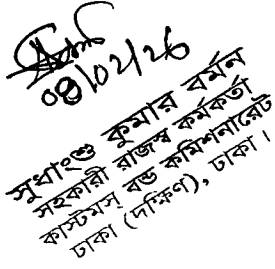 ০৪/০২/২৬
সুধাংশু কুমার বর্মন
সহকারী রাজস্ব কর্মকর্তা
কাস্টমস্ বন্ড কমিশনারেট
ঢাকা (দক্ষিণ), ঢাকা।